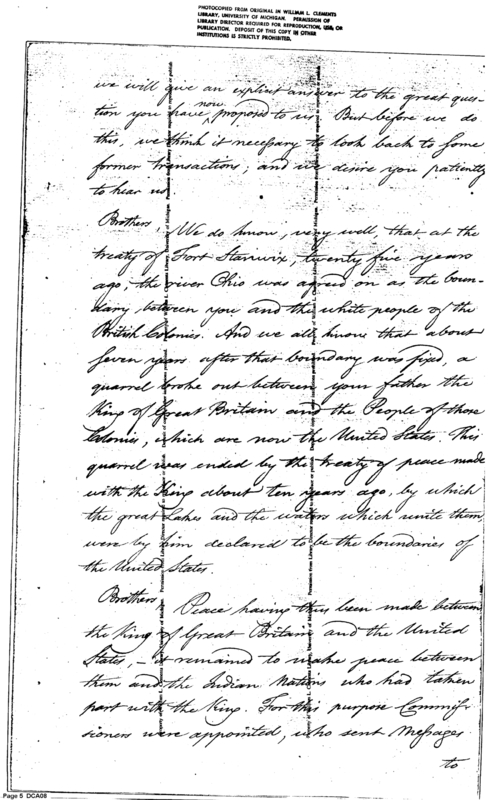 PHOTOCOPIED FROM ORIGINAL IN WILLIAM L. CLEMENTS
LIBRARY, UNIVERSITY OF MICHIGAN. PERMISSION OF
LIBRARY DIRECTOR REQUIRED FOR REPRODUCTION, USE, OR
PUBLICATION. DEPOSIT OF THIS COPY IN OTHER
INSTITUTIONS IS STRICTLY PROHIBITED.
we will give an explicit answer to the great ques-
now
tion you have proposed to us. But before we do
this, we think it necessary to look back to some
former transactions; and we desire you patiently
to hear us
Brothers,
We do know, very well, that at the
treaty of Fort Stanwix, twenty five years
ago, the river Ohio was agreed on as the boun-
dary between you and the white people of the
British Colonies. And we all know that about
seven years after that boundary was fixed, a
quarrel broke out between your father the
King of Great Britain and the People of those
Colonies, which are now the United States. This
quarrel was ended by the treaty of peace made
with the King about ten years ago, by which
the great Lakes and the waters which unite them
were by him declared to be the boundaries of
the United States.
Brothers,
Peace having thus been made between
the King of Great Britain and the United
States, – it remained to make peace between
them and the Indian Nations who had taken
part with the King. For this purpose Commis-
sioners were appointed, who sent Messages
to
Page 5 DCA08